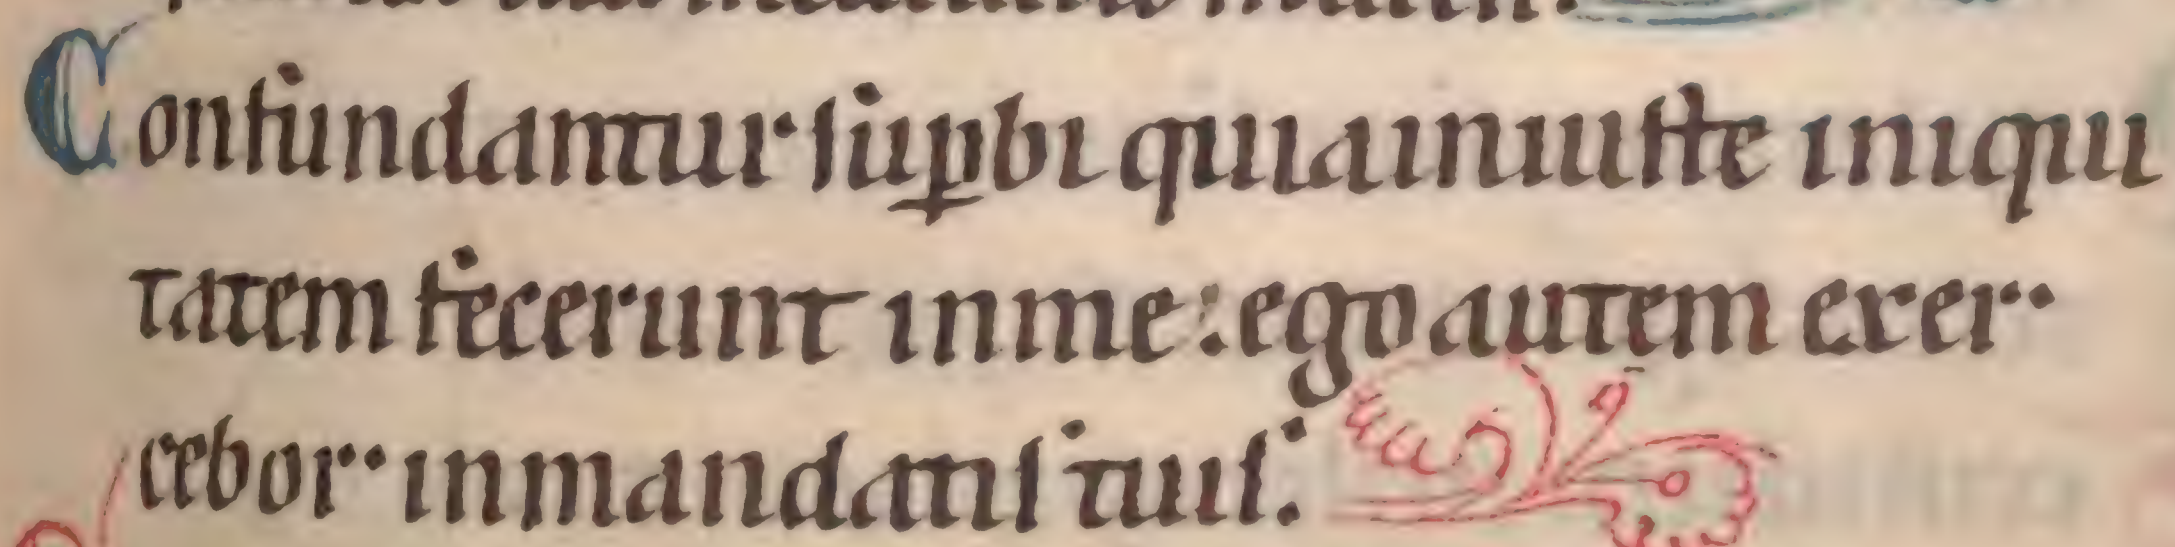 Confundantur suꝑbi quia iniuste iniqui
tatem fecerunt in me: ego autem exer
cebor in mandatis tuis.